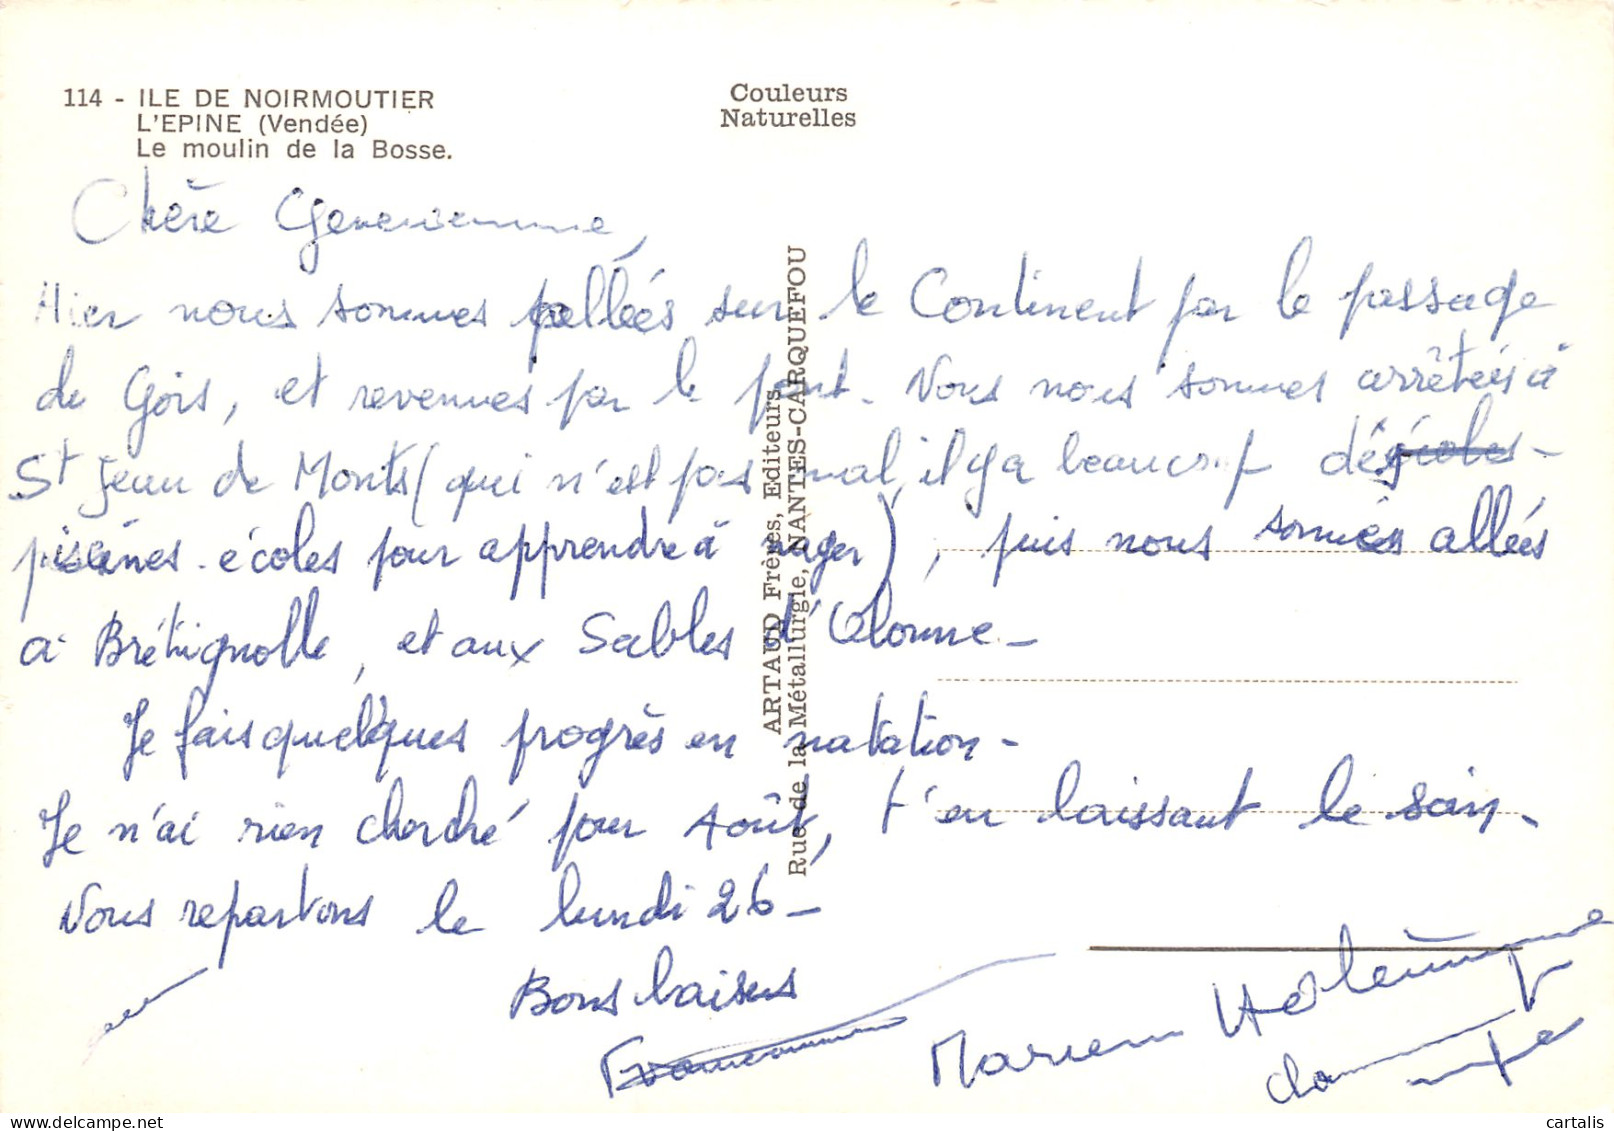 114 - ILE DE NOIRMOUTIER
L'EPINE (Vendée)
Le moulin de la Bosse.
Couleurs
Naturelles
ARTAUD Frères, Editeurs
Rue de la Métallurgie, NANTES-CARQUEFOU
Chère
Hier nous sommes allées sur le Continent par le passage
du Gois, et revenues par le pont. Nous nous sommes arrêtées à
St Jean de Monts (qui n'est pas mal, il y a beaucoup de
piscines-écoles pour apprendre à nager), puis nous sommes allées
à Brétignolle, et aux Sables d'Olonne -
Je fais quelques progrès en natation -
Je n'ai rien cherché pour Août, t'en laissant le soin -
Nous repartons le lundi 26 -
Bons baisers
cartalis